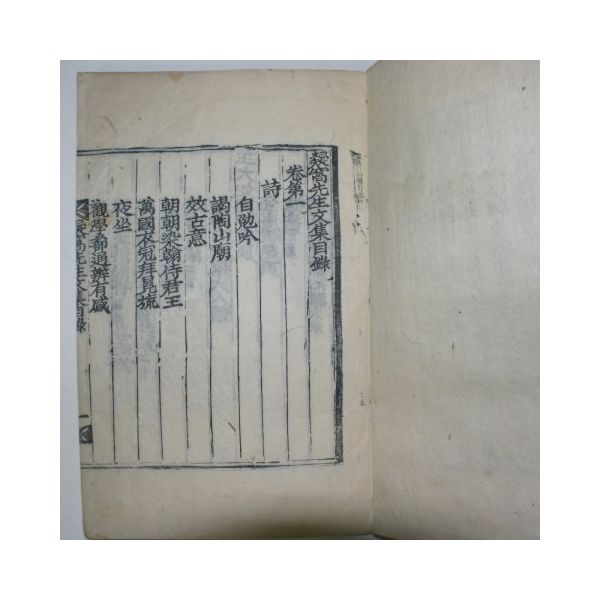 凝窩先生文集目錄
卷第一
詩
自勉吟
謁陶山廟
效古意
朝朝染翰侍君王
萬國衣冠拜冕旒
夜坐
觀學蔀通辨有感
凝窩先生文集目錄 一